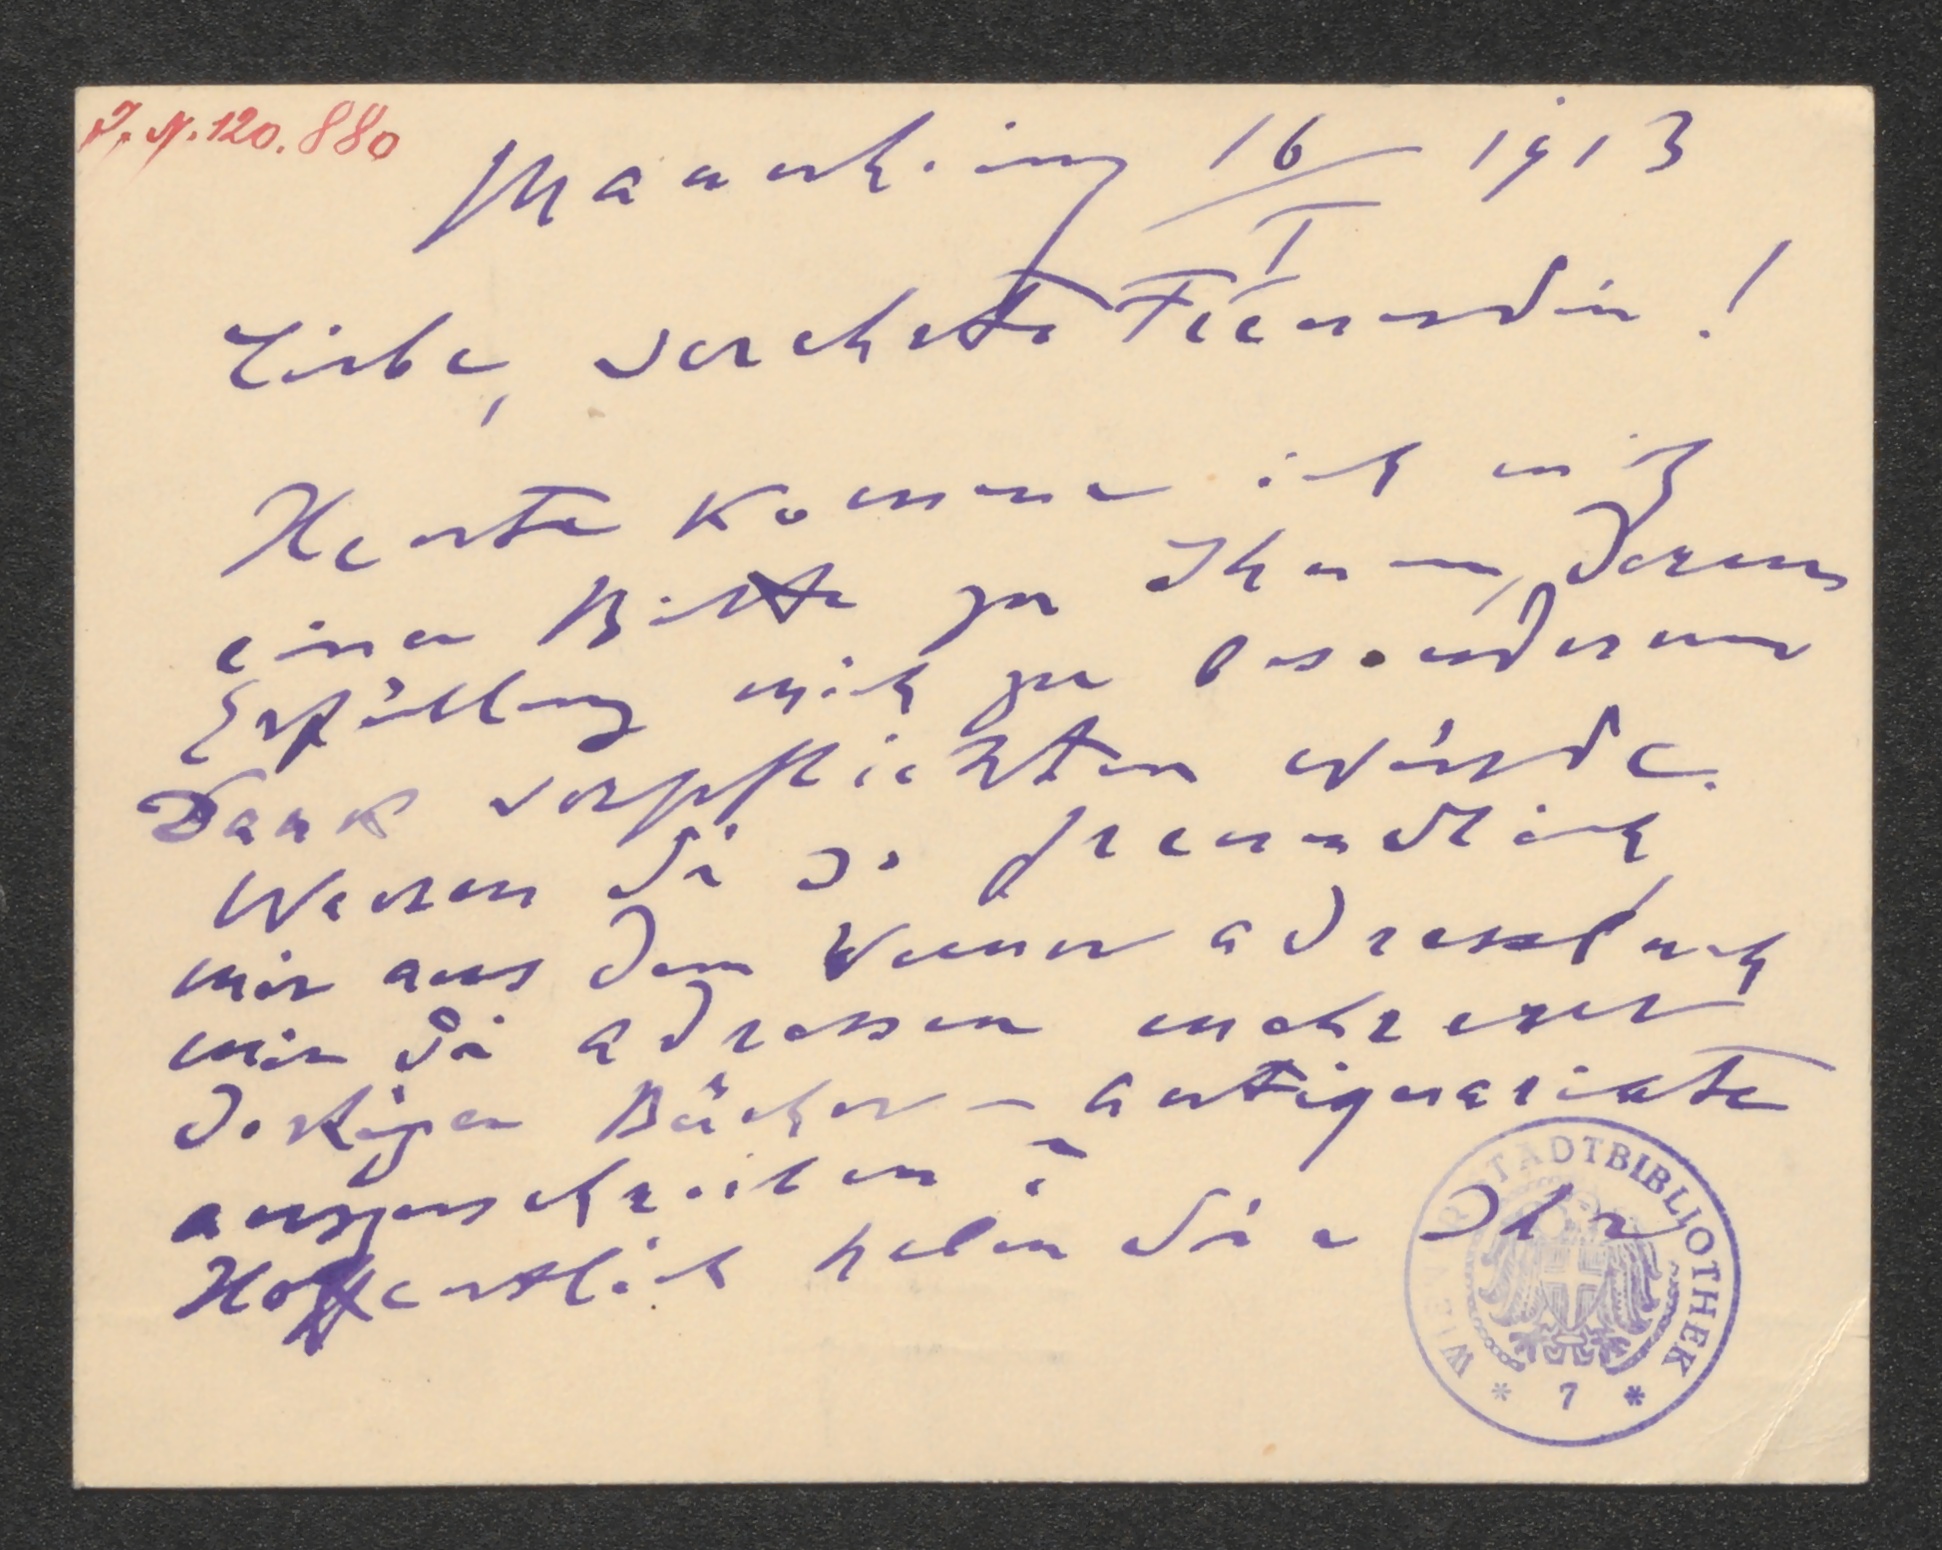 J. N. 120.880
Mauerk.ing 16/I 1913
Liebe, verehrte Freundin!
Heute komme ich mit
einer Bitte zu Ihnen, deren
Erfüllung mich zu besonderem
Dank verpflichten würde.
Waeren Sie so freundlich
mir aus dem Wiener adressbuch
mir die adressen mehrerer
dortigen Bücher-antiquariate
auszuschreiben?
Hoffentlich haben Sie Ihr
WIENER STADTBIBLIOTHEK
* 7 *